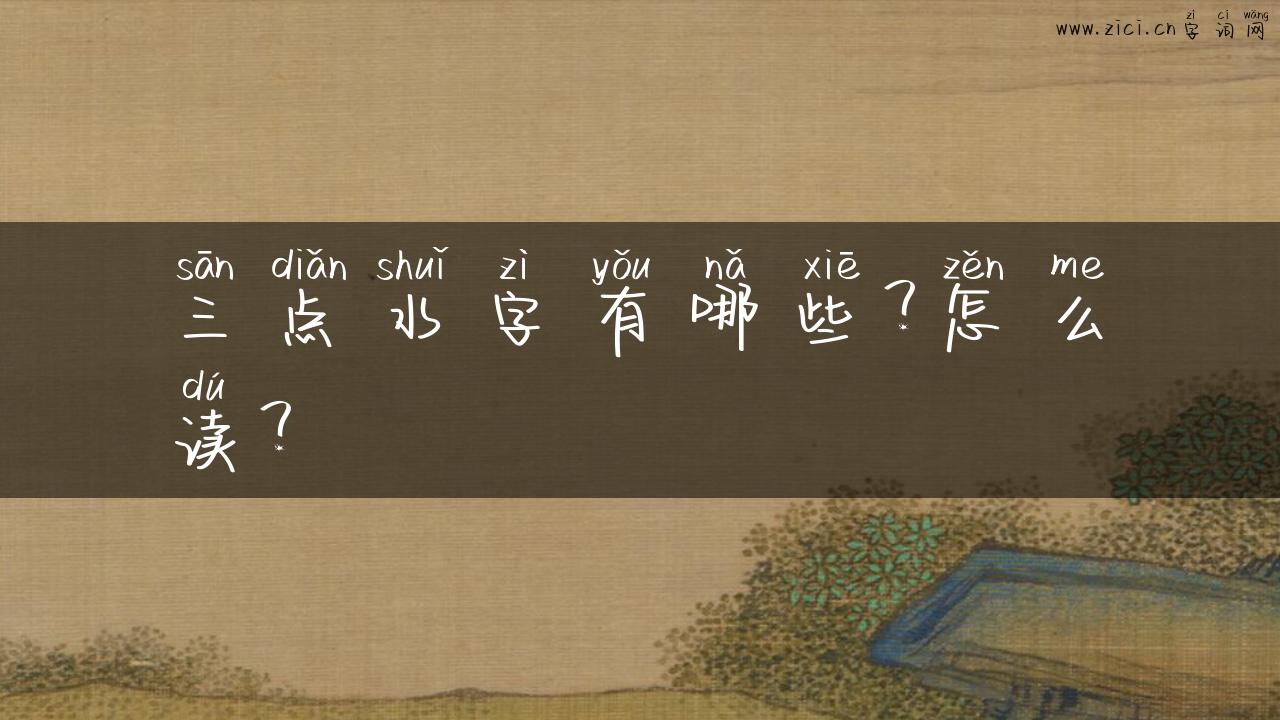 zì cí wǎng
www.zici.cn 字词网
sān diǎn shuǐ zì yǒu nǎ xiē zěn me
三点水字有哪些？怎么
dú
读？